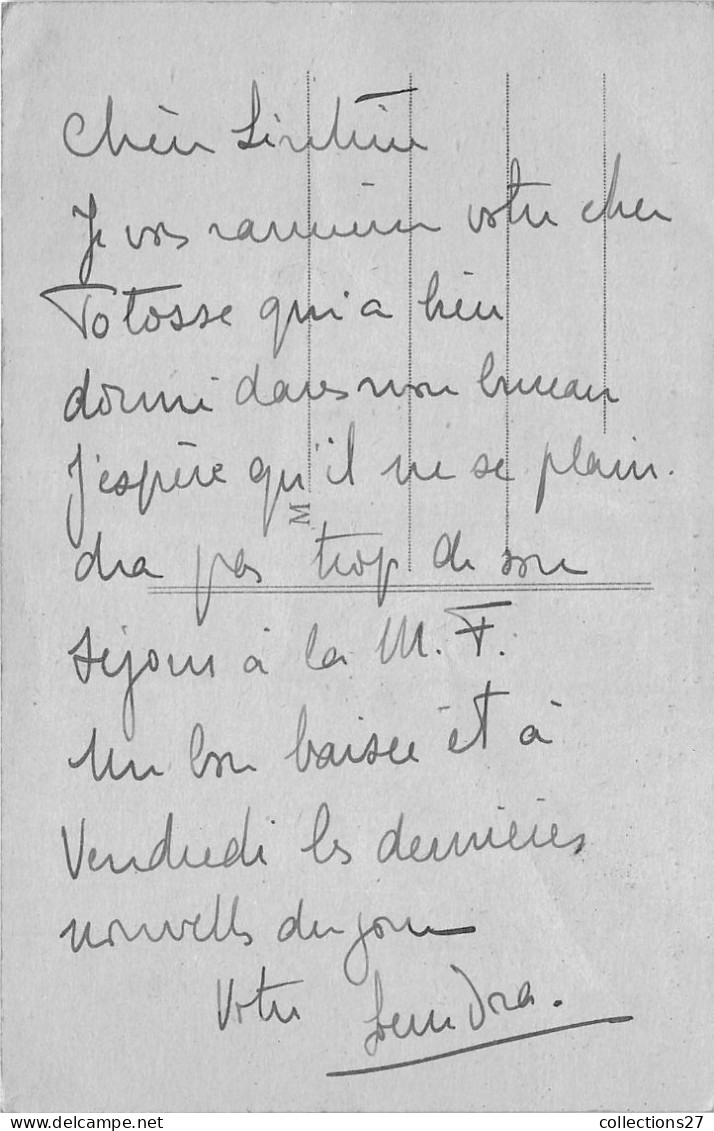 Chère
Je vous ramène votre cher
Totosse qui a bien
dormi dans mon bureau
J'espère qu'il ne se plain-
dra pas trop de son
M
séjour à la M. F.
Un bon baiser et à
Vendredi les dernières
nouvelles du jour
Votre
collections27